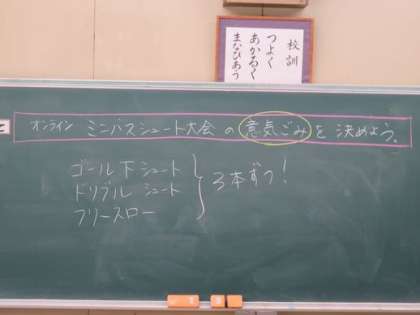 校訓
つよく
あかるく
まなびあう
オンライン ミニバスシュート大会 の 意気ごみ を 決めよう。
ゴール下シュート
ドリブルシュート
フリースロー
3本ずつ!